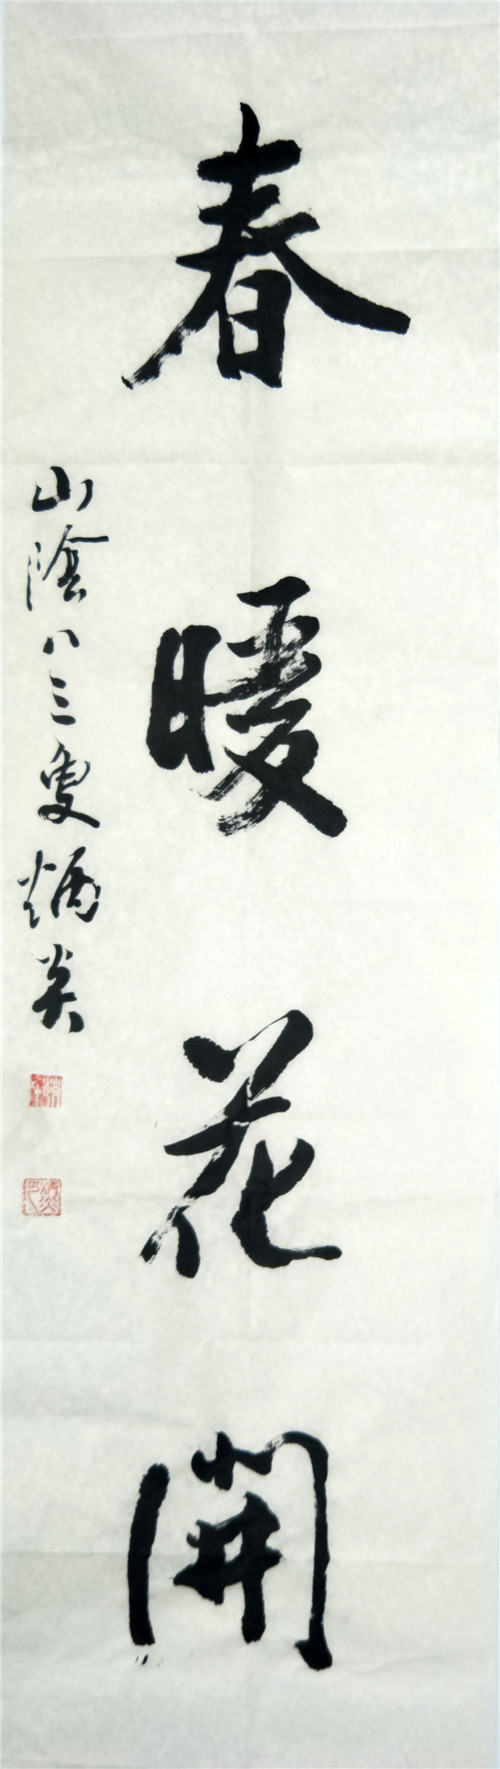 春暖花開
山陰八三叟炳炎